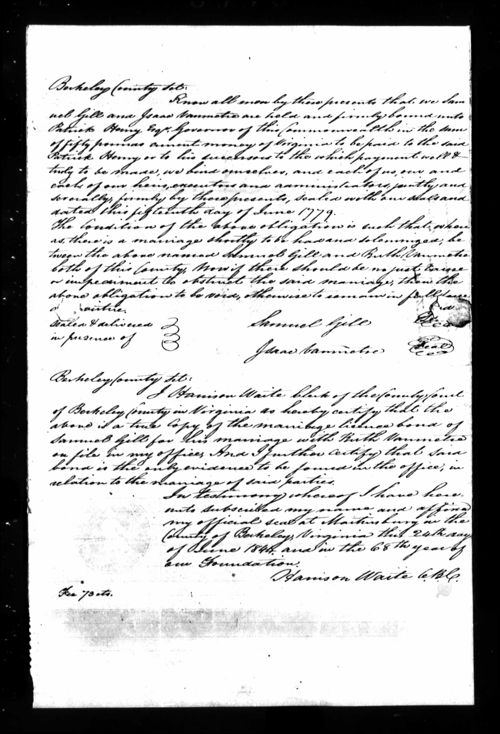 Berkeley County Sct:
Know all men by these presents that we Sam
uel Gill and Isaac Vanmetre are held and firmly bound unto
Patrick Henry Esqr. Governor of this Commonwealth in the sum
of fifty pounds current money of Virginia to be paid to the said
Patrick Henry or to his successors to the which payment well &
truly to be made, we bind ourselves, and each of us, our and
each of our heirs, executors and administrators, jointly and
severally, firmly by these presents, sealed with our seals and
dated this fifteenth day of June 1779.
The Condition of the above obligation is such that, where
as there is a marriage shortly to be had and solemnized, be
tween the above named Samuel Gill and Ruth Vanmetre
both of this County, Now if there should be no just cause
or impediment to obstruct the said marriage, then the
above obligation to be void, otherwise to remain in full force
& virtue.
sealed & delivered
in presence of
Samuel Gill Seal
Isaac Vanmetre Seal
Berkeley County Sct:
I Harrison Waite Clerk of the County Court
of Berkeley County in Virginia do hereby certify that the
above is a true Copy of the marriage licence bond of
Samuel Gill for his marriage with Ruth Vanmetre
on file in my office, And I further certify that said
bond is the only evidence to be found in the office, in
relation to the marriage of said parties.
In testimony whereof I have here
unto subscribed my name and affixed
my official seal at Martinsburg in the
County of Berkeley, Virginia this 24th day
of June 1844. and in the 68th year of
our Foundation.
Harrison Waite C.B.C.
Fee 73 cts.